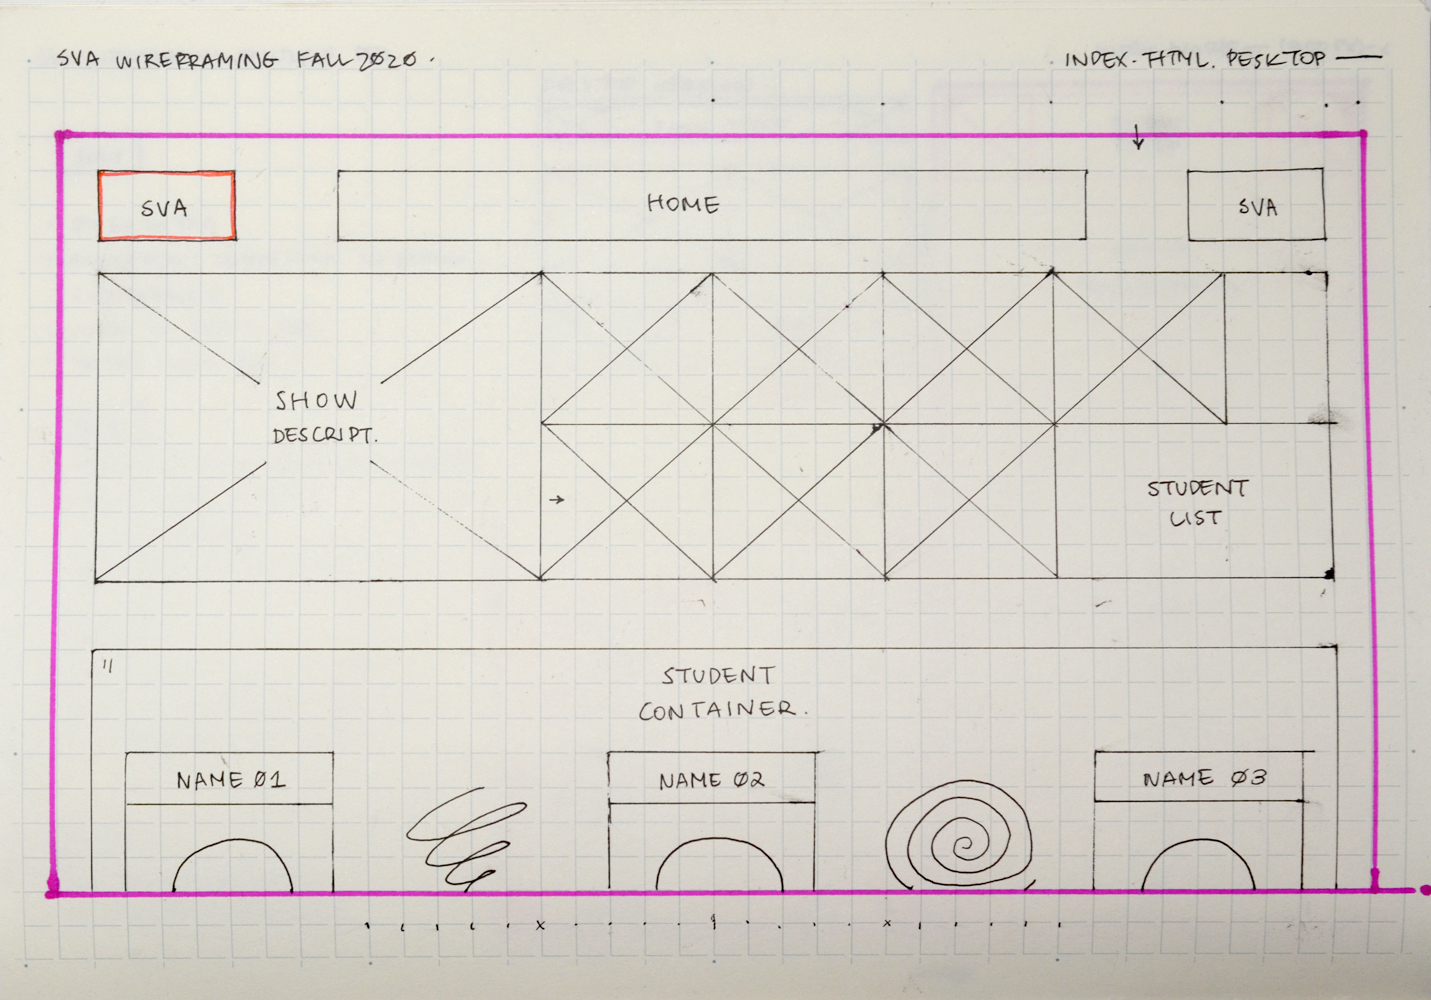 SVA WIREFRAMING FALL 2020.
INDEX.HTML. DESKTOP —
SVA
HOME
SVA
SHOW
DESCRIPT.
STUDENT
LIST
STUDENT
CONTAINER.
NAME 01
NAME 02
NAME 03